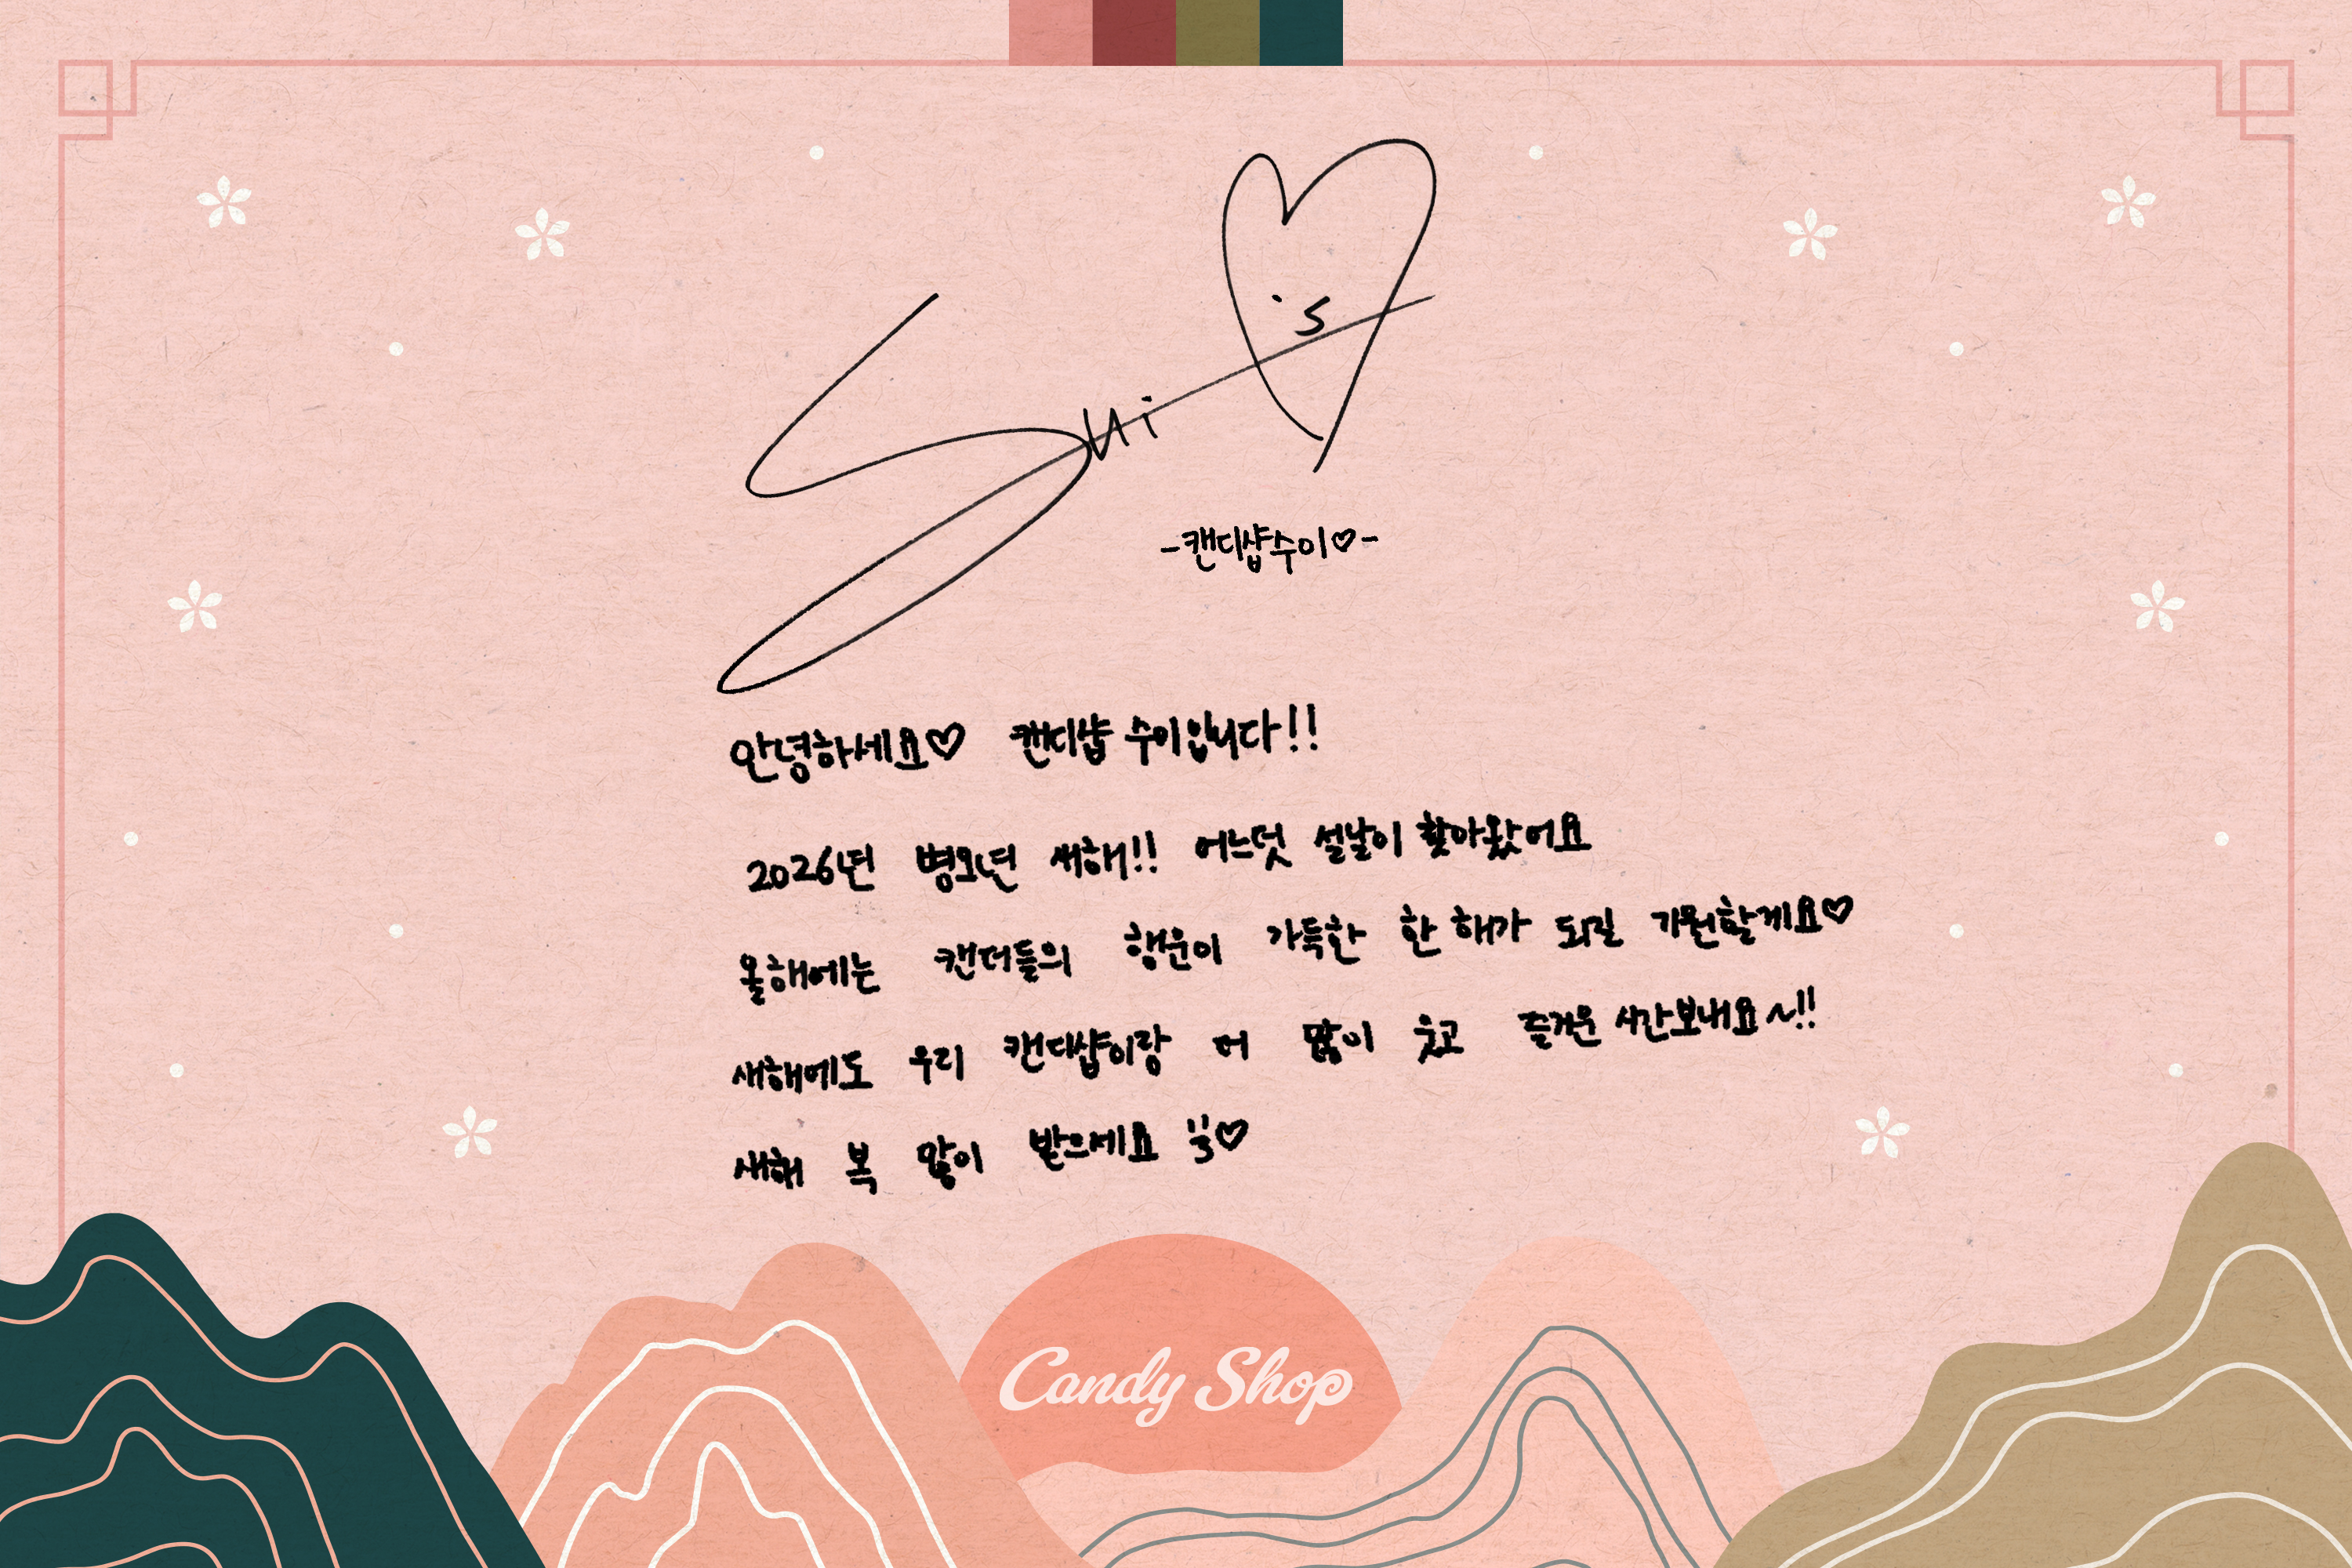 Sui ♡
's
-캔디샵수이♡-
안녕하세요♡ 캔디샵 수이입니다!!
2026년 병오년 새해!! 어느덧 설날이 찾아왔어요
올해에는 캔더들의 행운이 가득한 한 해가 되길 기원할게요♡
새해에도 우리 캔디샵이랑 더 많이 웃고 즐거운 시간보내요~!!
새해 복 많이 받으세요 ♡
Candy Shop